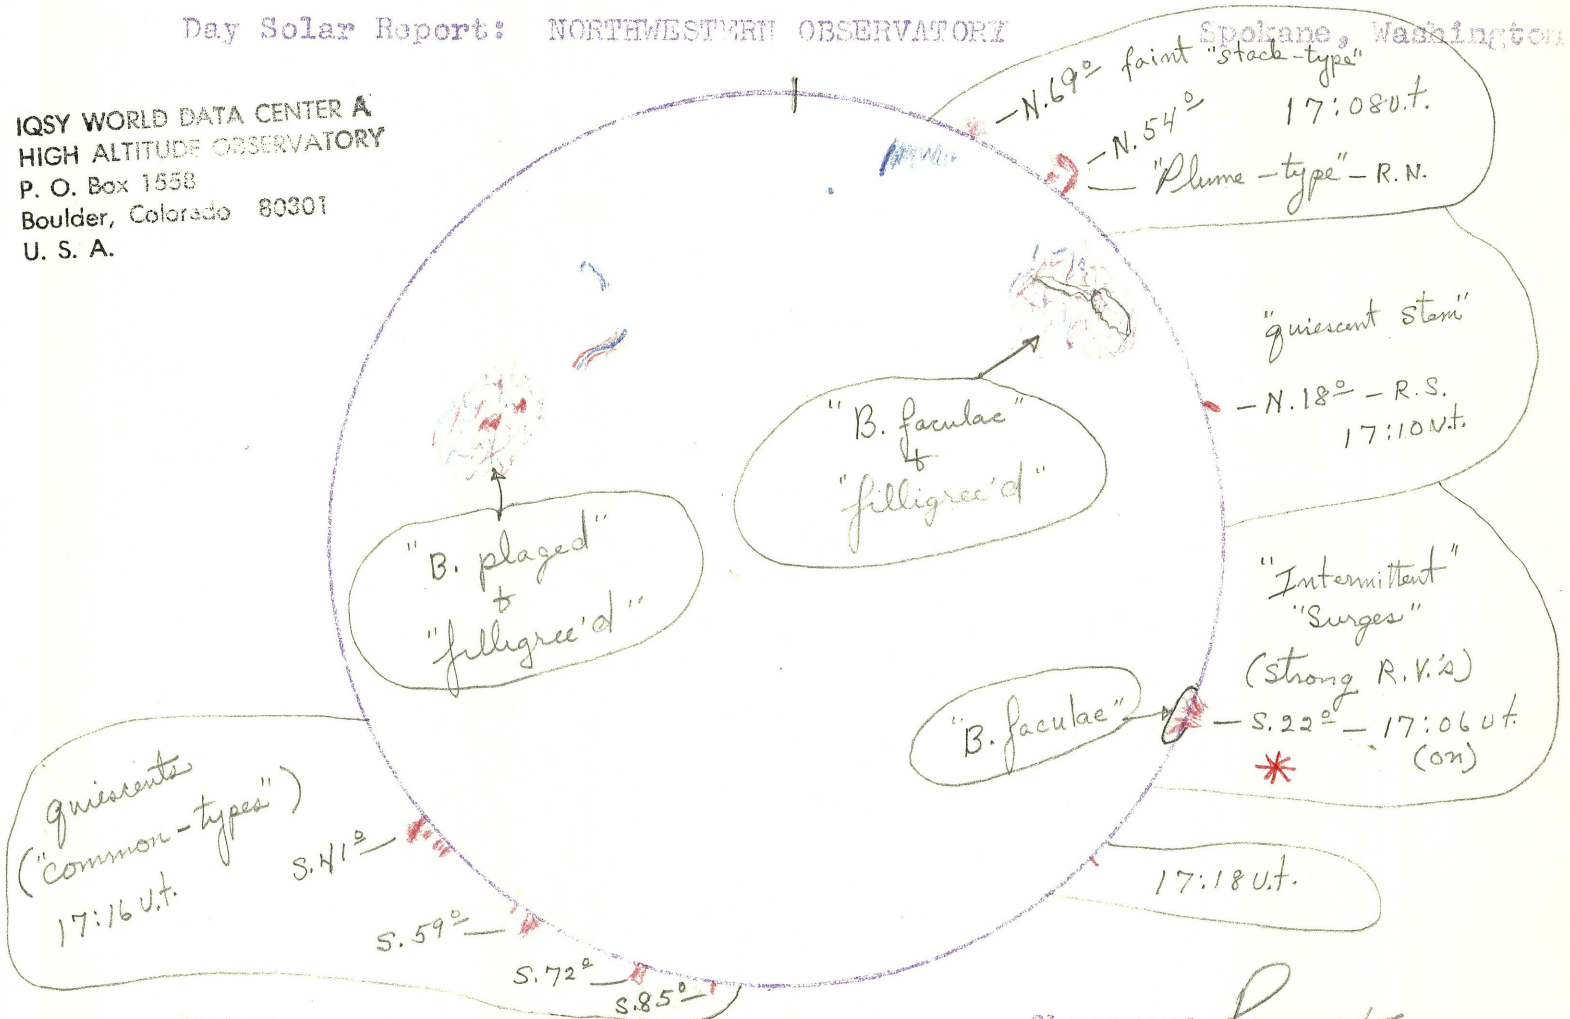 Day Solar Report: NORTHWESTERN OBSERVATORY Spokane, Washington
IQSY WORLD DATA CENTER A
HIGH ALTITUDE OBSERVATORY
P. O. Box 1558
Boulder, Colorado 80301
U. S. A.
— N. 69° faint "stack-type"
17:08 U.t.
— N. 54°
— "Plume-type" — R.N.
"quiescent stem"
— N. 18° — R.S.
17:10 U.t.
"B. faculae"
+
"filligree'd"
"B. plaged"
+
"filligree'd"
"Intermittent"
"Surges"
(strong R.V.'s)
— S. 22° — 17:06 Ut.
(on)
*
"B. faculae"
quiescents
("common-types")
17:16 U.t.
S. 41° —
S. 59° —
S. 72° —
S. 85° —
17:18 U.t.